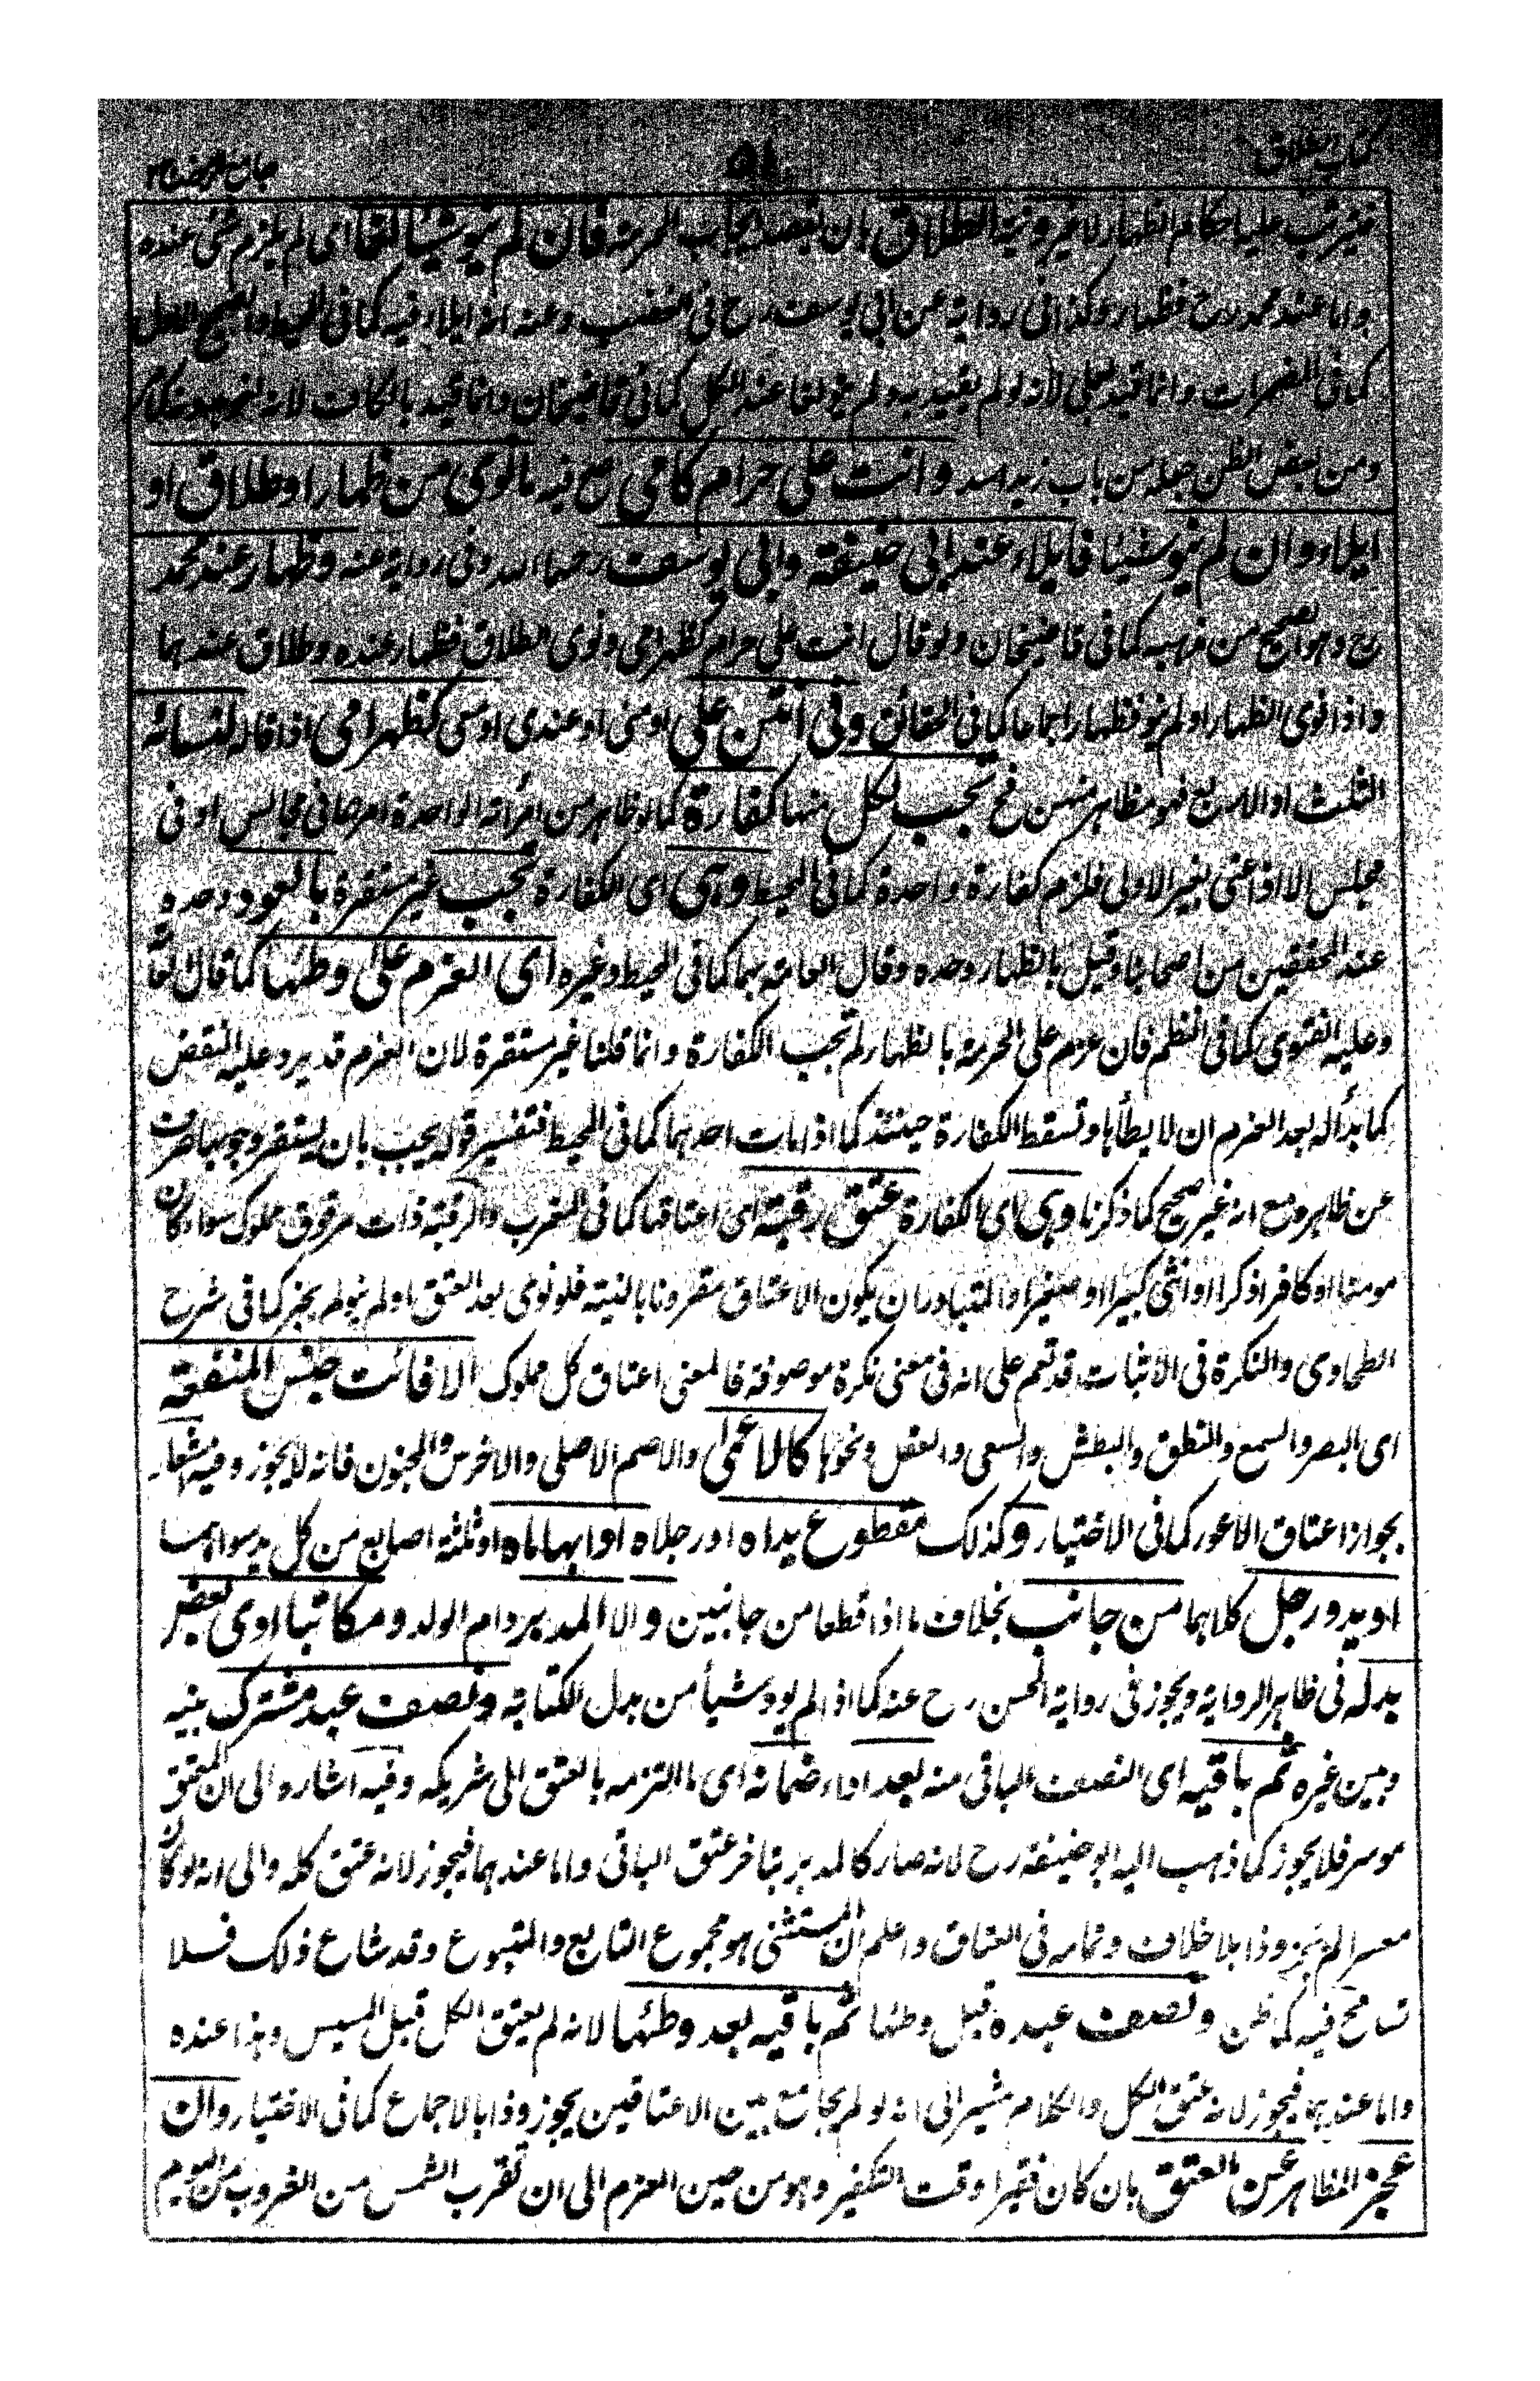 كتاب الطلاق ٥١ جامع الرموز ٢
فيترتب عليه احكام الظهار لا غير ونية الطلاق بان يقصد ايجاب الحرمة فان لم ينو شيئا لغا اى لم يلزم شئ عنده
واما عند محمد رح فظهار وكذا فى رواية عن ابى يوسف رح فى الغضب وعنه انه ايلاء فيه كما فى المحيط والصحيح الاول
كما فى المضمرات وانما قيد بعلى لانه لو لم يقيد به ولم ينو لغا عند الكل كما فى قاضيخان وانما قيد بالكاف لانه
ومن بعض الظن جعله من باب زيد اسد وانت على حرام كامى صح فيه ما نوى من ظهار او طلاق او
ايلاء وان لم ينو شيئا فايلاء عند ابى حنيفة وابى يوسف رحمهما الله وفى رواية عنه وظهار عند محمد
رح وهو الصحيح من مذهبه كما فى قاضيخان ولو قال انت على حرام كظهر امى ونوى الطلاق فظهار عنده وطلاق عندهما
واذا نوى الظهار او لم ينو فظهار اجماعا كما فى الحقائق وفى انتن على او منى او عندى او معى كظهر امى اذا قاله لنسائه
الثلث او الاربع فهو مظاهر منهن فح تجب لكل منها كفارة كما لو ظاهر من امرأته الواحدة مرارا فى مجالس او فى
مجلس الا اذا عنى بغير الاولى فلزم كفارة واحدة كما فى المحيط وهى اى الكفارة تجب غير مستقرة بالعود وحده
عند المحققين من اصحابنا وقيل بالظهار وحده وقال العامة بهما كما فى المحيط وغيره اى العزم على وطئها كما قال تعا
وعليه الفتوى كما فى النظم فان عزم على الحرمة بالظهار لم تجب الكفارة وانما قلنا غير مستقرة لان العزم قد يرد عليه النقض
كما بدأ له بعد العزم ان لا يطأها وتسقط الكفارة حينئذ كما اذا مات احدهما كما فى المحيط فتفسير قوله يجب بان يستقر وجوبها صرف
عن ظاهره مع انه غير صحيح كما ذكرنا وهى اى الكفارة عتق رقبة اى اعتاقها كما فى المغرب والرقبة ذات مرقوق مملوك سواء كان
مومنا او كافرا ذكرا او انثى كبيرا او صغيرا والمتبادر ان يكون الاعتاق مقرونا بالنية فلو نوى بعد العتق او لم ينو لم يجز كما فى شرح
الطحاوى والنكرة فى الاثبات قد تعم على انه فى معنى نكرة موصوفة فالمعنى اعتاق كل مملوك الا فائت جنس المنفعة
اى البصر والسمع والنطق والبطش والسعى والعقل ونحوها كالاعمى والاصم الاصلى والاخرس والمجنون فانه لا يجوز وفيه اشعار
بجواز اعتاق الاعور كما فى الاختيار وكذلك مقطوع يداه او رجلاه او ابهاماه او ثلثة اصابع من كل يد سواهما
او يد ورجل كلاهما من جانب بخلاف ما اذا قطعا من جانبين والا المدبر وام الولد ومكاتبا ادى بعض
بدله فى ظاهر الرواية ويجوز فى رواية الحسن رح عنه كما اذا لم يود شيأ من بدل الكتابة ونصف عبد مشترك بينه
وبين غيره ثم باقيه اى النصف الباقى منه بعد اداء ضمانه اى ما التزمه بالعتق الى شريكه وفيه اشارة الى ان المعتق
موسر فلا يجوز كما ذهب اليه ابو حنيفة رح لانه صار كالمدبر بتاخر عتق الباقى واما عندهما فيجوز لانه عتق كله والى انه لو كان
معسرا لم يجز وذا بلا خلاف وتمامه فى العتاق واعلم ان المستثنى هو مجموع التابع والمتبوع وقد شاع ذلك فلا
تسامح فيه كما ظن ونصف عبده قبل وطئها ثم باقيه بعد وطئها لانه لم يعتق الكل قبل المسيس وهذا عنده
واما عندهما فيجوز لانه عتق الكل والكلام مشير الى انه لو لم يجامع بين الاعتاقين يجوز وذا بالاجماع كما فى الاختيار وان
عجز المظاهر عن العتق بان كان فقيرا وقت التكفير وهو من حين العزم الى ان تقرب الشمس من الغروب من اليوم